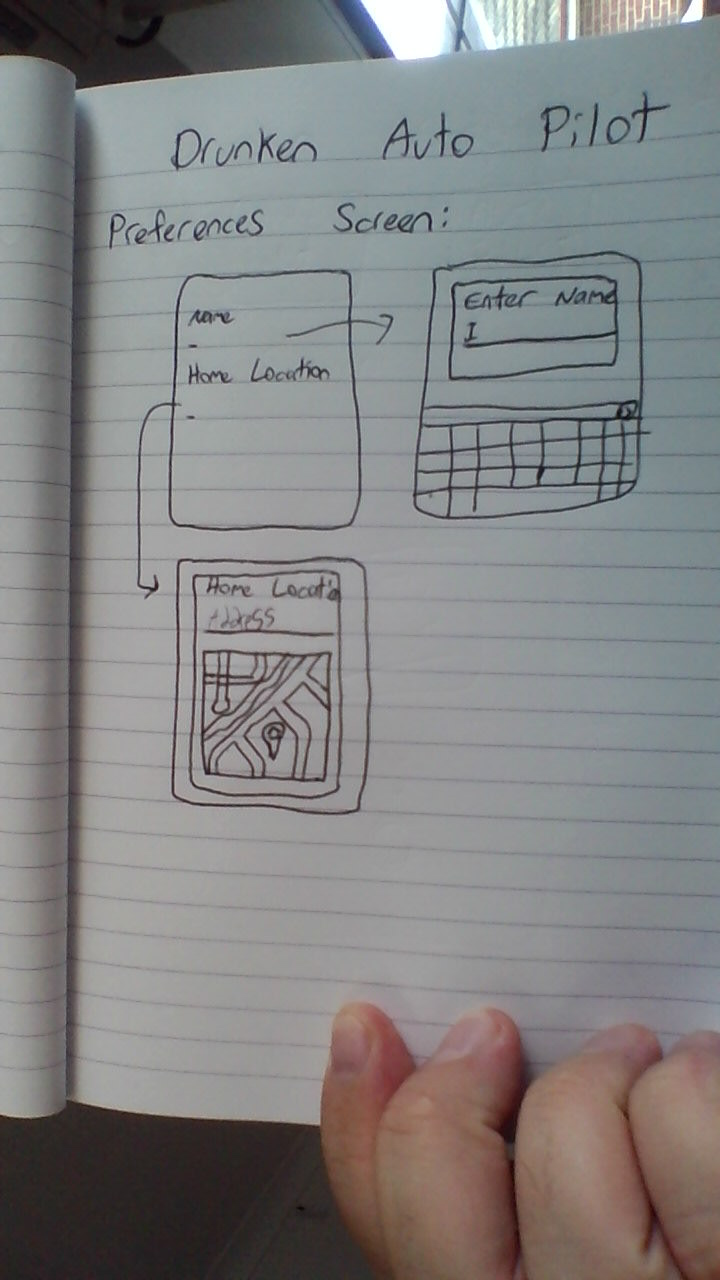 Drunken Auto Pilot
Preferences Screen:
Name
Home Location
Enter Name
Home Locatio
Address